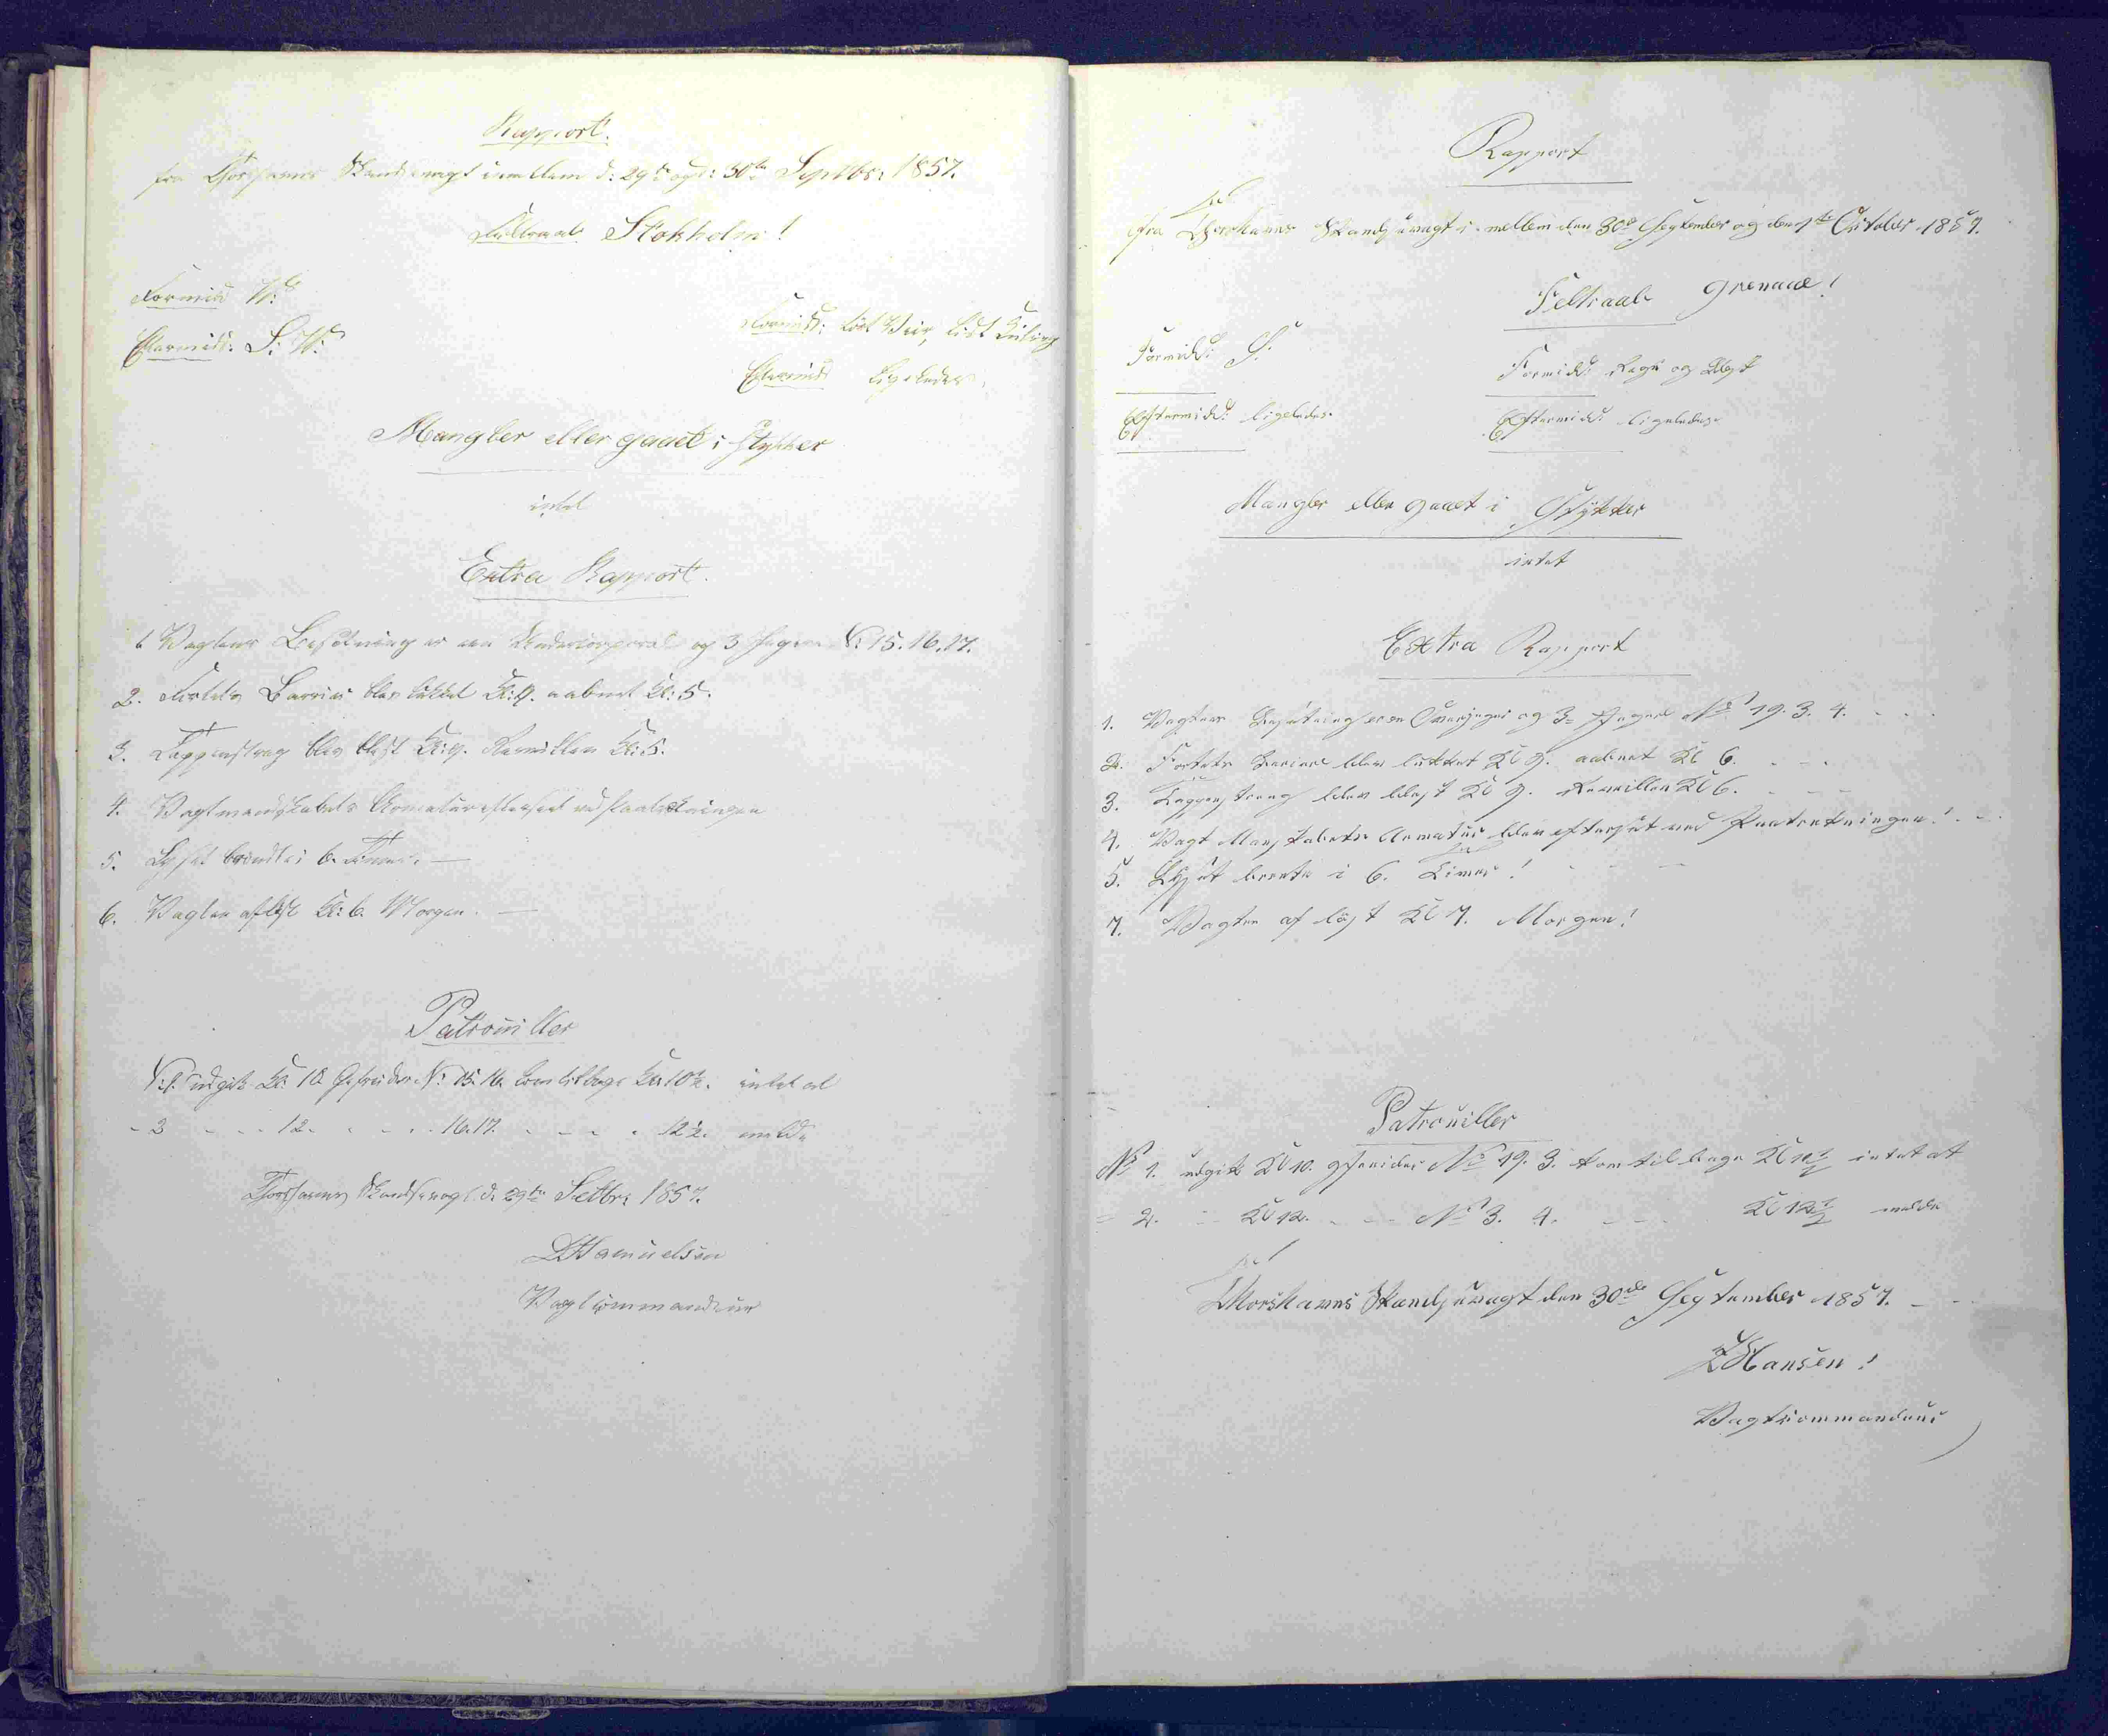 Rapport.
fra Thorshavns Skandsevagt imellem d: 29de og d: 30te Septbr: 1857.
Feltraab Stokholm!
Formidd: W:
Eftermidd: S: W:
Formidd: tört Veir, lidt Kuling
Eftermidd: ligeledes.
Mangler eller gaaet i Stykker
intet
Extra Rapport.
1. Vagtens Besætning er een Undercorporal og 3 Jægere N: 15. 16. 17.
2. Fortets Barriere blev lukket Kl: 9. aabnet Kl: 5.
3. Tappenstreg blev blæst Kl: 9. Reveillen Kl: 5.
4. Vagtmandskabets Armatur efterseet ved Paatrædningen
5. Lyset brændte i 6. Timer.
6. Vagten aflöst Kl: 6. Morgen.
Patrouiller
N: 1. udgik Kl: 10. Gefreider N: 15. 16. kom tilbage Kl: 10½. intet at
- 2 - - - 12. - - - 16. 17. - - - 12½. melde
Thorshavns Skandsevagt d. 29de Setbr: 1857.
Samuelsen
Vagtcommandeur
Rapport
fra Thorshavns Skandsevagt i mellem den 30te September og den 1ste October 1857.
Feltraab Grenade!
Formidd: S.
Formidd: Regn og Blæst
Eftermidd: ligeledes.
Eftermidd: ligeledes.
Mangler eller gaaet i Stykker
intet
Extra Rapport
1. Vagtens Besætning er en Overjæger og 3 Jægere No 19. 3. 4.
2. Fortets Bariere blev lukket Kl 9. aabnet Kl 6.
3. Tappenstreng blev blæst Kl 9. Reveillen Kl 6.
4. Vagt Manskabets Armatur blev efterset ved Paatrækningen!
5. Lyset brente i 6. Timer!
7. Vagten af löst Kl 7. Morgen!
Patrouiller
No 1. udgik Kl 10. Gfreider No 19. 3. kom tilbage Kl 10½ intet at
= 2. - Kl 12. - - No 3. 4. - - - Kl 12½ melde
Thorshavns Skandsevagt den 30te September 1857.
Hansen!
Vagtcommandeur